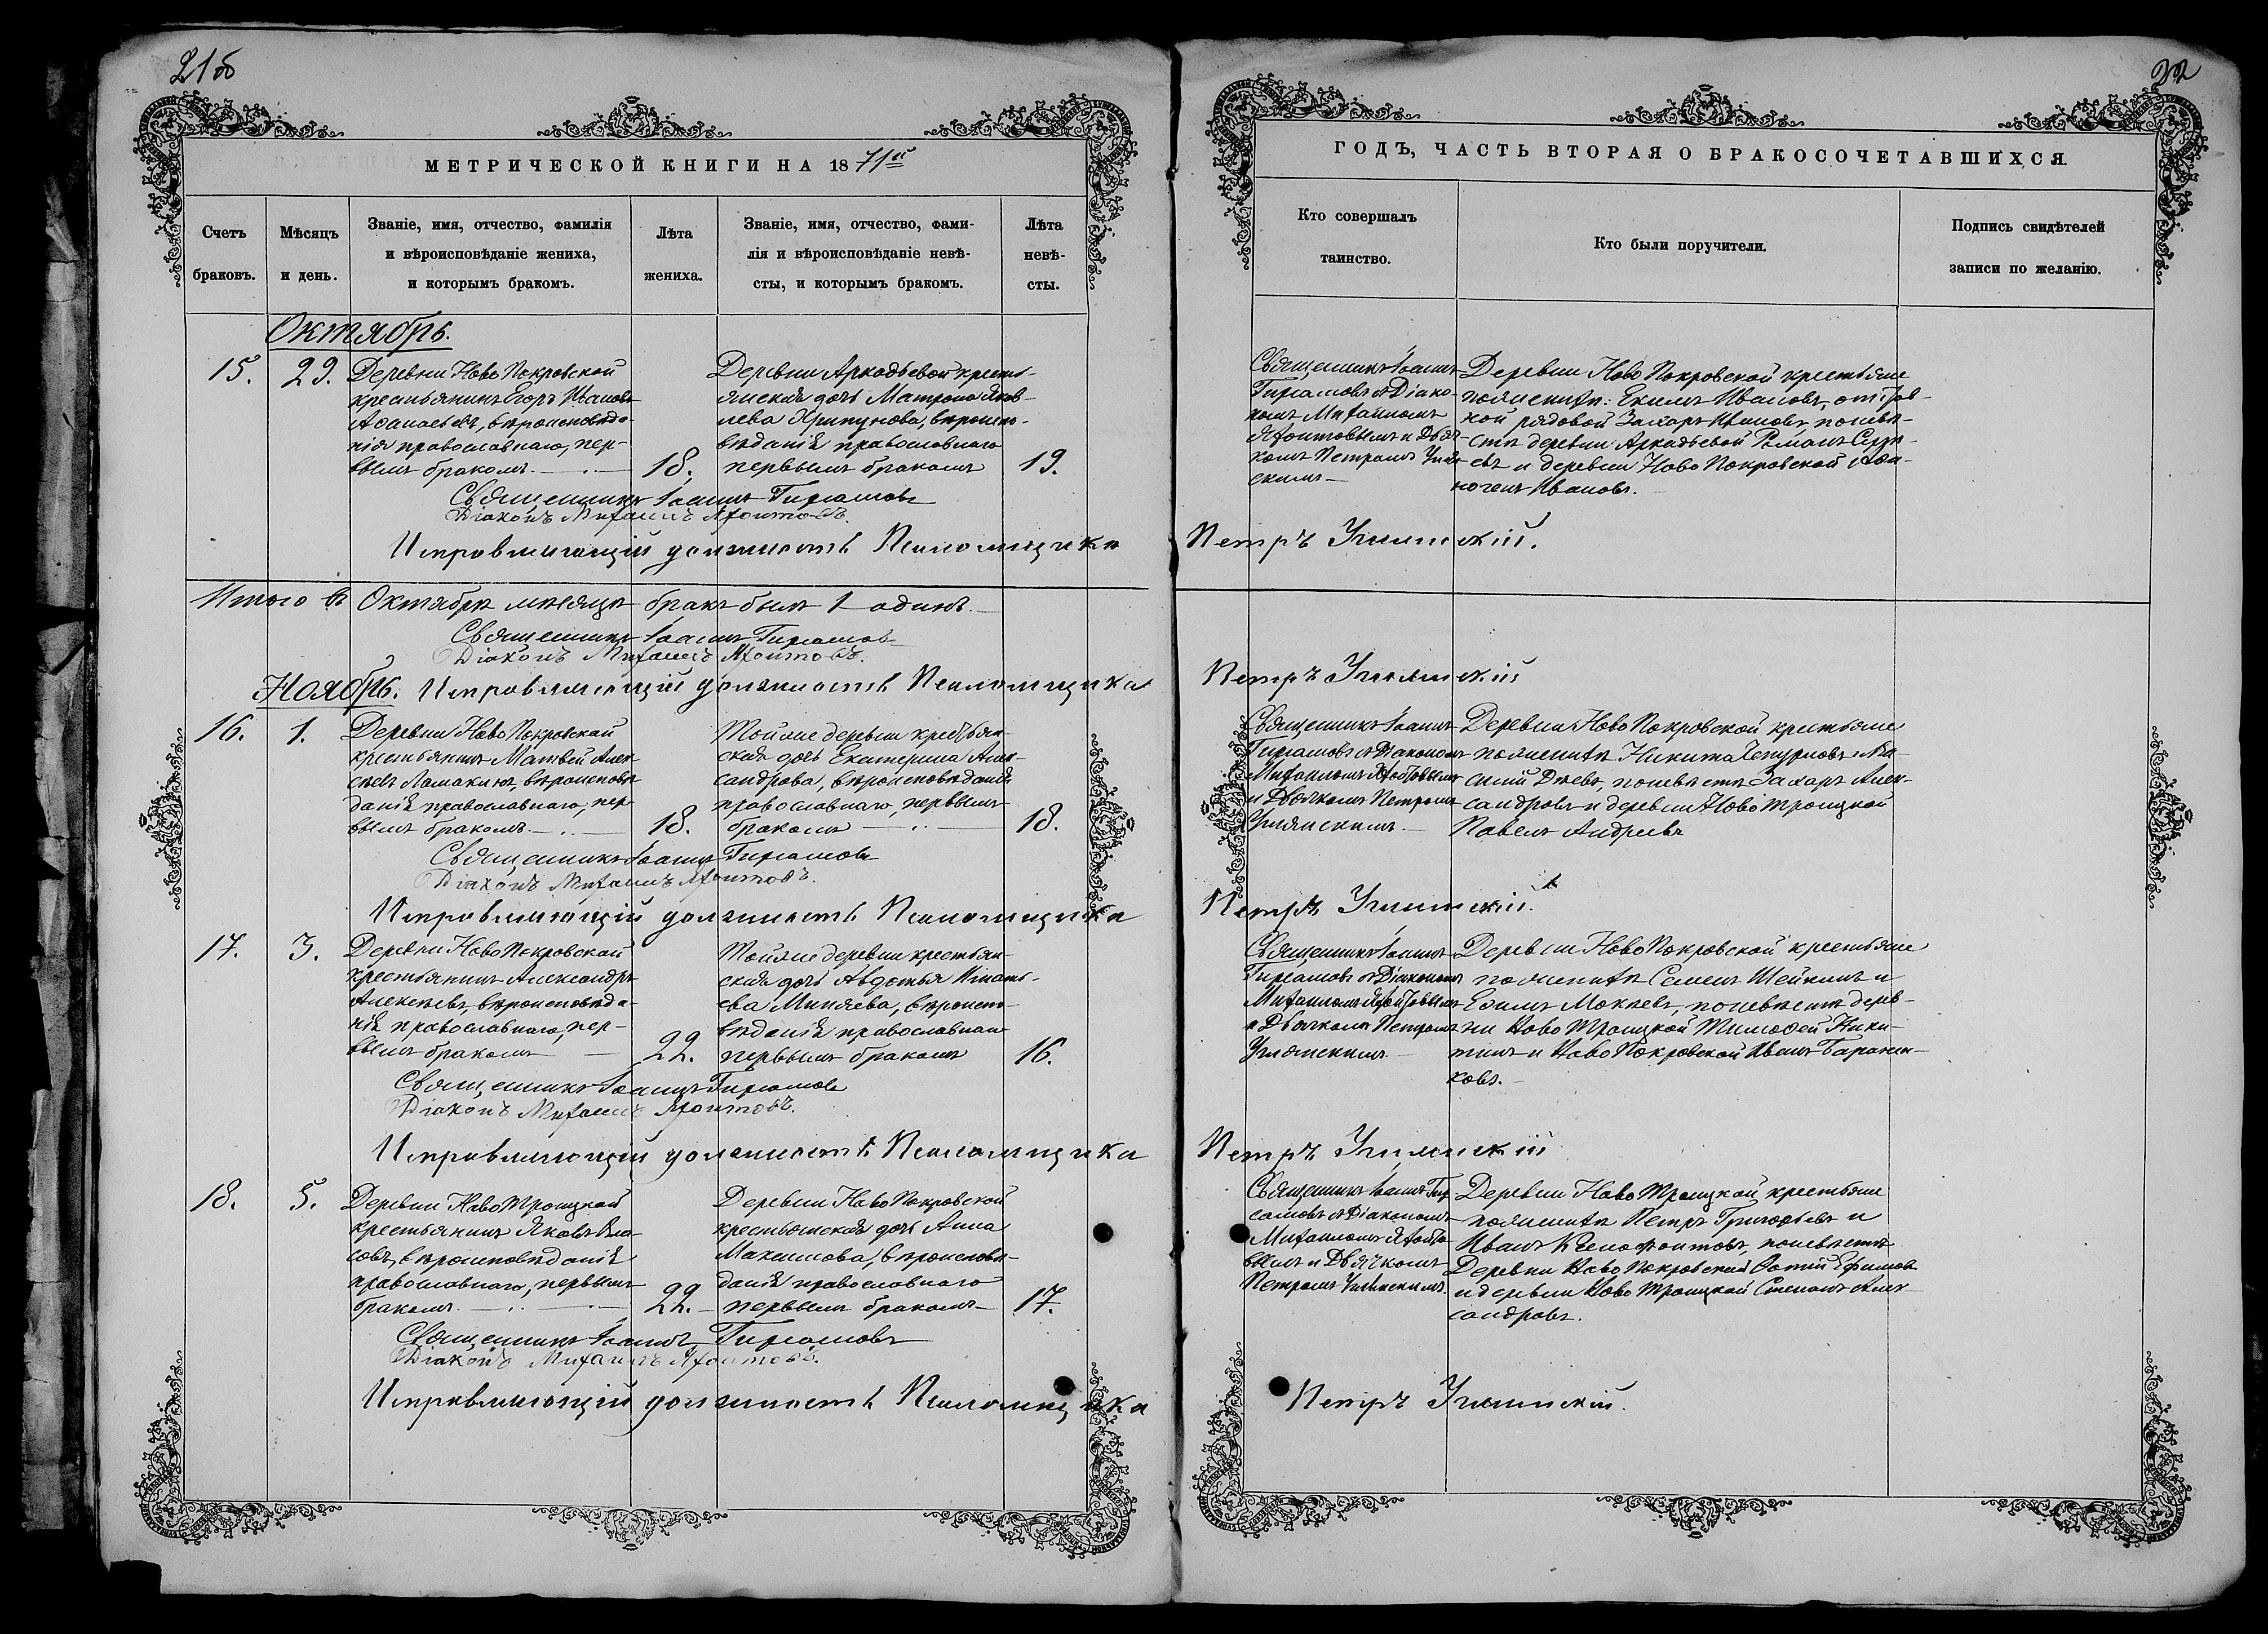 21об
МЕТРИЧЕСКОЙ КНИГИ НА 1871й
Счетъ браковъ.
Мѣсяцъ и день.
Званіе, имя, отчество, фамилія
и вѣроисповѣданіе жениха,
и которымъ бракомъ.
Лѣта жениха.
Званіе, имя, отчество, фами-
лія и вѣроисповѣданіе невѣ-
сты, и которымъ бракомъ.
Лѣта невѣ-
сты.
Октябрь.
15. 29.
Деревни Ново Покровской
крестьянинъ Егоръ Ивановъ
Аѳанасьевъ, вѣроисповѣда-
нія православнаго, пер-
вымъ бракомъ. 18.
Деревни Аркадьевой кресть-
янская дочь Матрона Яков-
лева Хрипунова, вѣроиспо-
вѣданія православнаго
первымъ бракомъ 19.
Священникъ Іоаннъ
Діаконъ Михаилъ
Исправляющій должность Псаломщика
Итого въ Октябрѣ мѣсяцѣ бракъ былъ 1 одинъ.
Священникъ Іоаннъ
Діаконъ Михаилъ
Ноябрь. Исправляющій должность Псаломщика
16. 1.
Деревни Ново Покровской
крестьянинъ Матвей Алек-
сѣевъ Ламакинъ, вѣроисповѣ-
данія православнаго, пер-
вымъ бракомъ. 18.
Тойже деревни крестьян-
ская дочь Екатерина Алек-
сандрова, вѣроисповѣданія
православнаго, первымъ
бракомъ 18.
Священникъ Іоаннъ
Діаконъ Михаилъ
Исправляющій должность Псаломщика
17. 3.
Деревни Ново Покровской
крестьянинъ Александръ
Алексѣевъ, вѣроисповѣда-
нія православнаго, пер-
вымъ бракомъ 22.
Тойже деревни крестьян-
ская дочь Авдотья Игнать-
ева Миняева, вѣроиспо-
вѣданія православнаго
первымъ бракомъ 16.
Священникъ Іоаннъ
Діаконъ Михаилъ
Исправляющій должность Псаломщика
18. 5.
Деревни Ново Троицкой
крестьянинъ Яковъ Вла-
совъ, вѣроисповѣданія
православнаго, первымъ
бракомъ. 22.
Деревни Ново Покровской
крестьянская дочь Анна
Максимова, вѣроисповѣ-
данія православнаго
первымъ бракомъ 17.
Священникъ Іоаннъ
Діаконъ Михаилъ
Исправляющій должность Псаломщика
22
ГОДЪ, ЧАСТЬ ВТОРАЯ О БРАКОСОЧЕТАВШИХСЯ.
Кто совершалъ
таинство.
Кто были поручители.
Подпись свидѣтелей
записи по желанію.
Священникъ Іоаннъ
съ Діако-
номъ Михаиломъ
и Дьяч-
комъ Петромъ
Деревни Ново Покровской крестьяне
по женихѣ: Екимъ Ивановъ, отстав-
ной рядовой Захаръ Ивановъ, по невѣ-
стѣ деревни Аркадьевой Романъ
и деревни Ново Покровской
Ивановъ.
Петръ
Петръ
Священникъ Іоаннъ
съ Діакономъ
Михаиломъ
и Дьячкомъ Петромъ
Деревни Ново Покровской крестьяне
по женихѣ Никита
по невѣстѣ Захаръ Алек-
сандровъ и деревни Ново Троицкой
Павелъ Андреевъ
Петръ
Священникъ Іоаннъ
съ Діакономъ
Михаиломъ
и Дьячкомъ Петромъ
Деревни Ново Покровской крестьяне
по женихѣ Семенъ Шейкинъ и
Екимъ Мокѣевъ, по невѣстѣ дерев-
ни Ново Троицкой Тимоѳей Ники-
тинъ и Ново Покровской Иванъ Баранни-
ковъ.
Петръ
Священникъ Іоаннъ
съ Діакономъ
Михаиломъ
и Дьячкомъ
Петромъ
Деревни Ново Троицкой крестьяне
по женихѣ Петръ Григорьевъ и
Иванъ Ксенофонтовъ, по невѣстѣ
Деревни Ново Покровской Фотій Ефимовъ
и деревни Ново Троицкой Степанъ Алек-
сандровъ.
Петръ